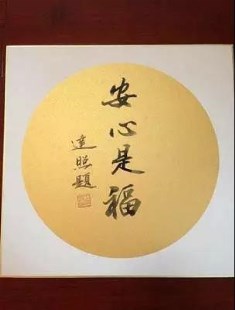 安心是福
達照題